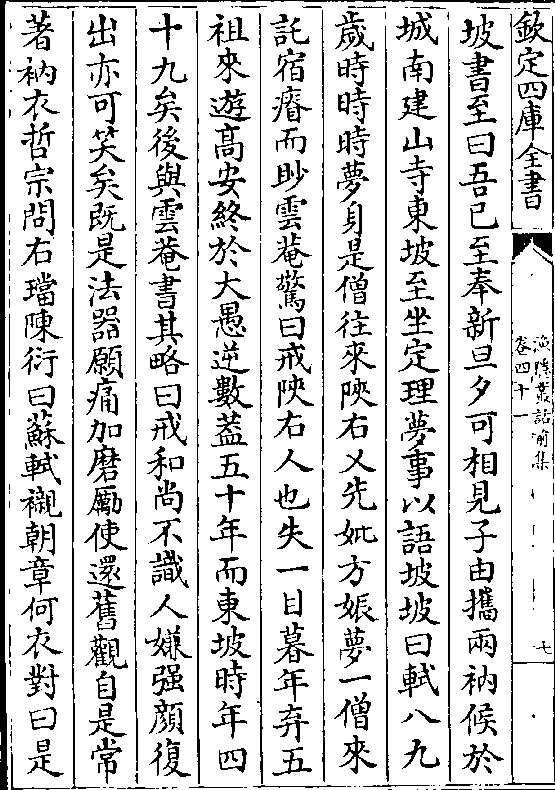 欽定四庫全書
漁隱叢話前集
卷四十一
七
坡書至曰吾已至奉新旦夕可相見子由攜兩衲候於
城南建山寺東坡至坐定理夢事以語坡坡曰軾八九
歲時時時夢身是僧往來陜右又先妣方娠夢一僧來
託宿瘠而眇雲菴驚曰戒陜右人也失一目暮年弃五
祖來遊高安終於大愚逆數葢五十年而東坡時年四
十九矣後與雲菴書其略曰戒和尚不識人嫌强顔復
出亦可笑矣既是法器願痛加磨勵使還舊觀自是常
著衲衣哲宗問右璫陳衍曰蘇軾襯朝章何衣對曰是